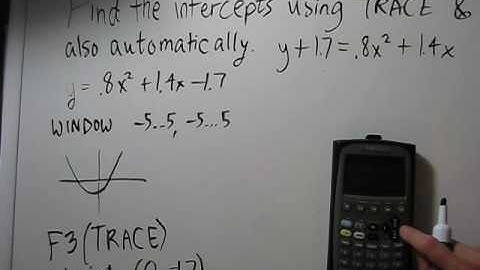 Find the intercepts using TRACE &
also automatically. y+1.7=.8x²+1.4x
y=.8x²+1.4x-1.7
WINDOW -5...5, -5...5
F3(TRACE)